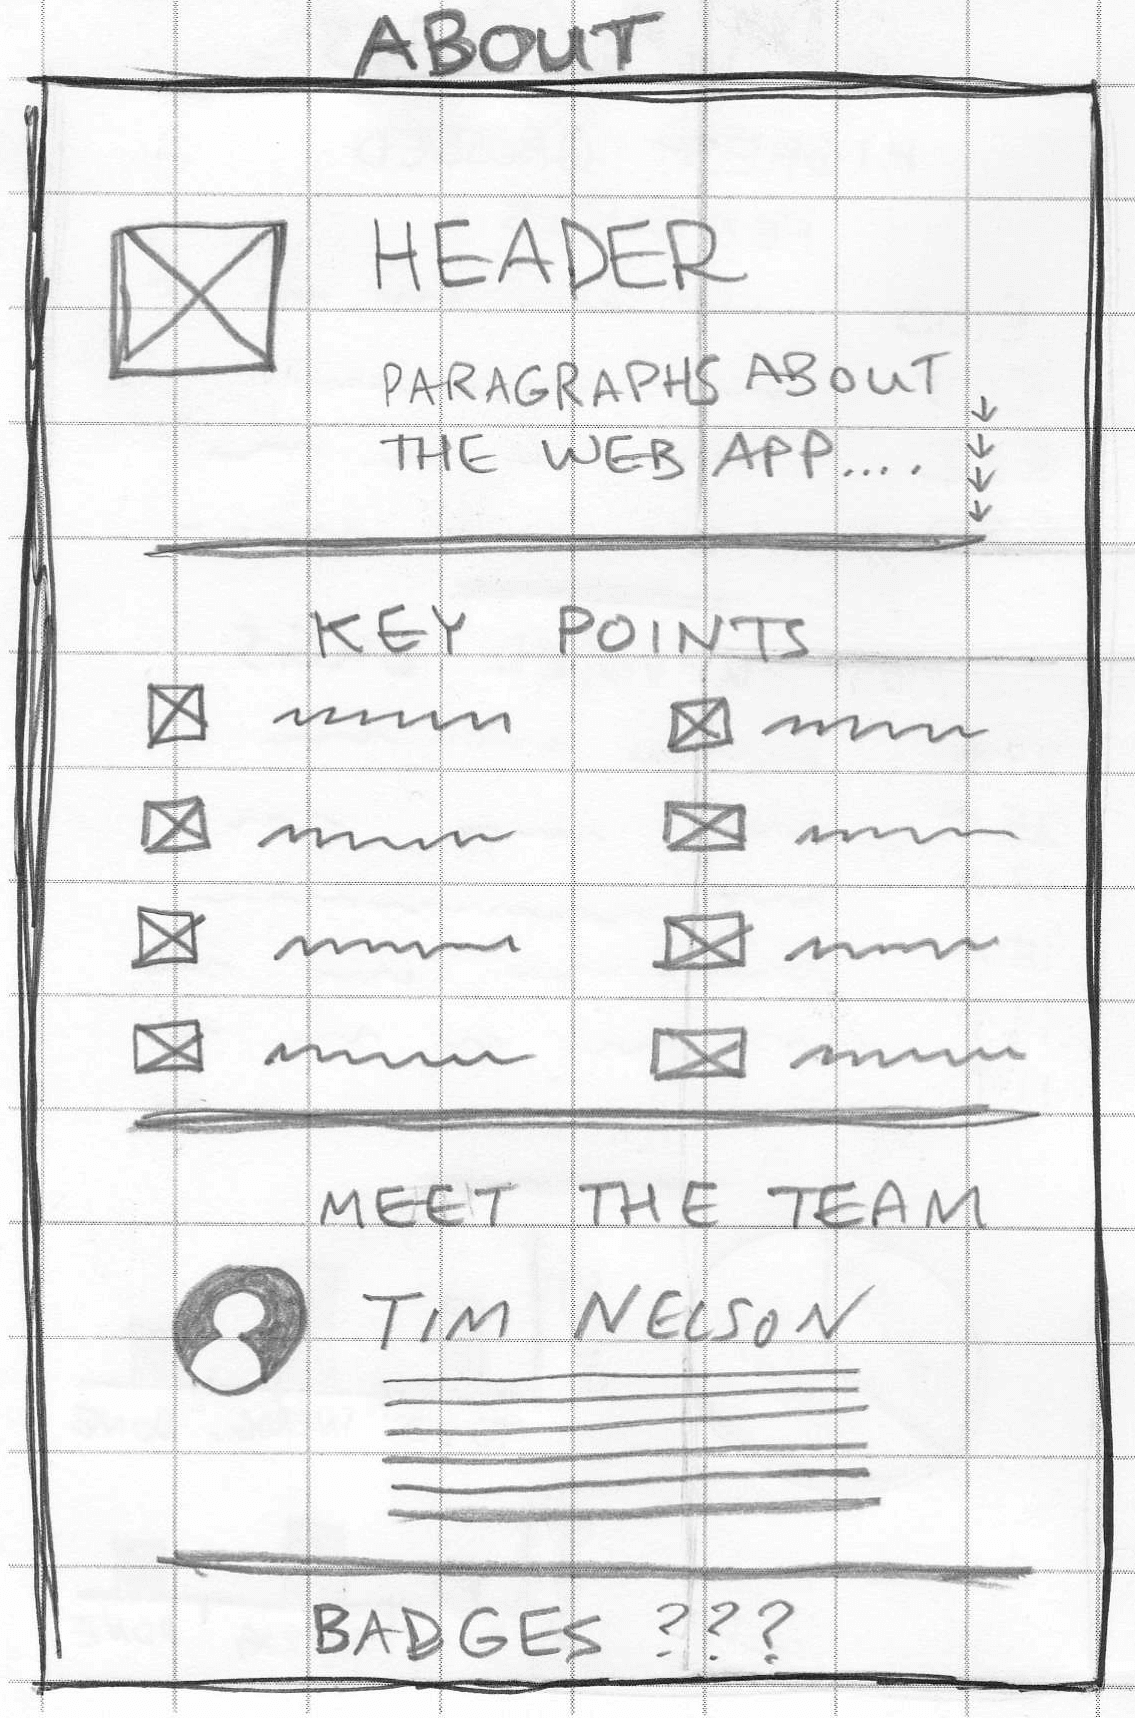 ABOUT
HEADER
PARAGRAPHS ABOUT
THE WEB APP....
KEY POINTS
MEET THE TEAM
TIM NELSON
BADGES ???